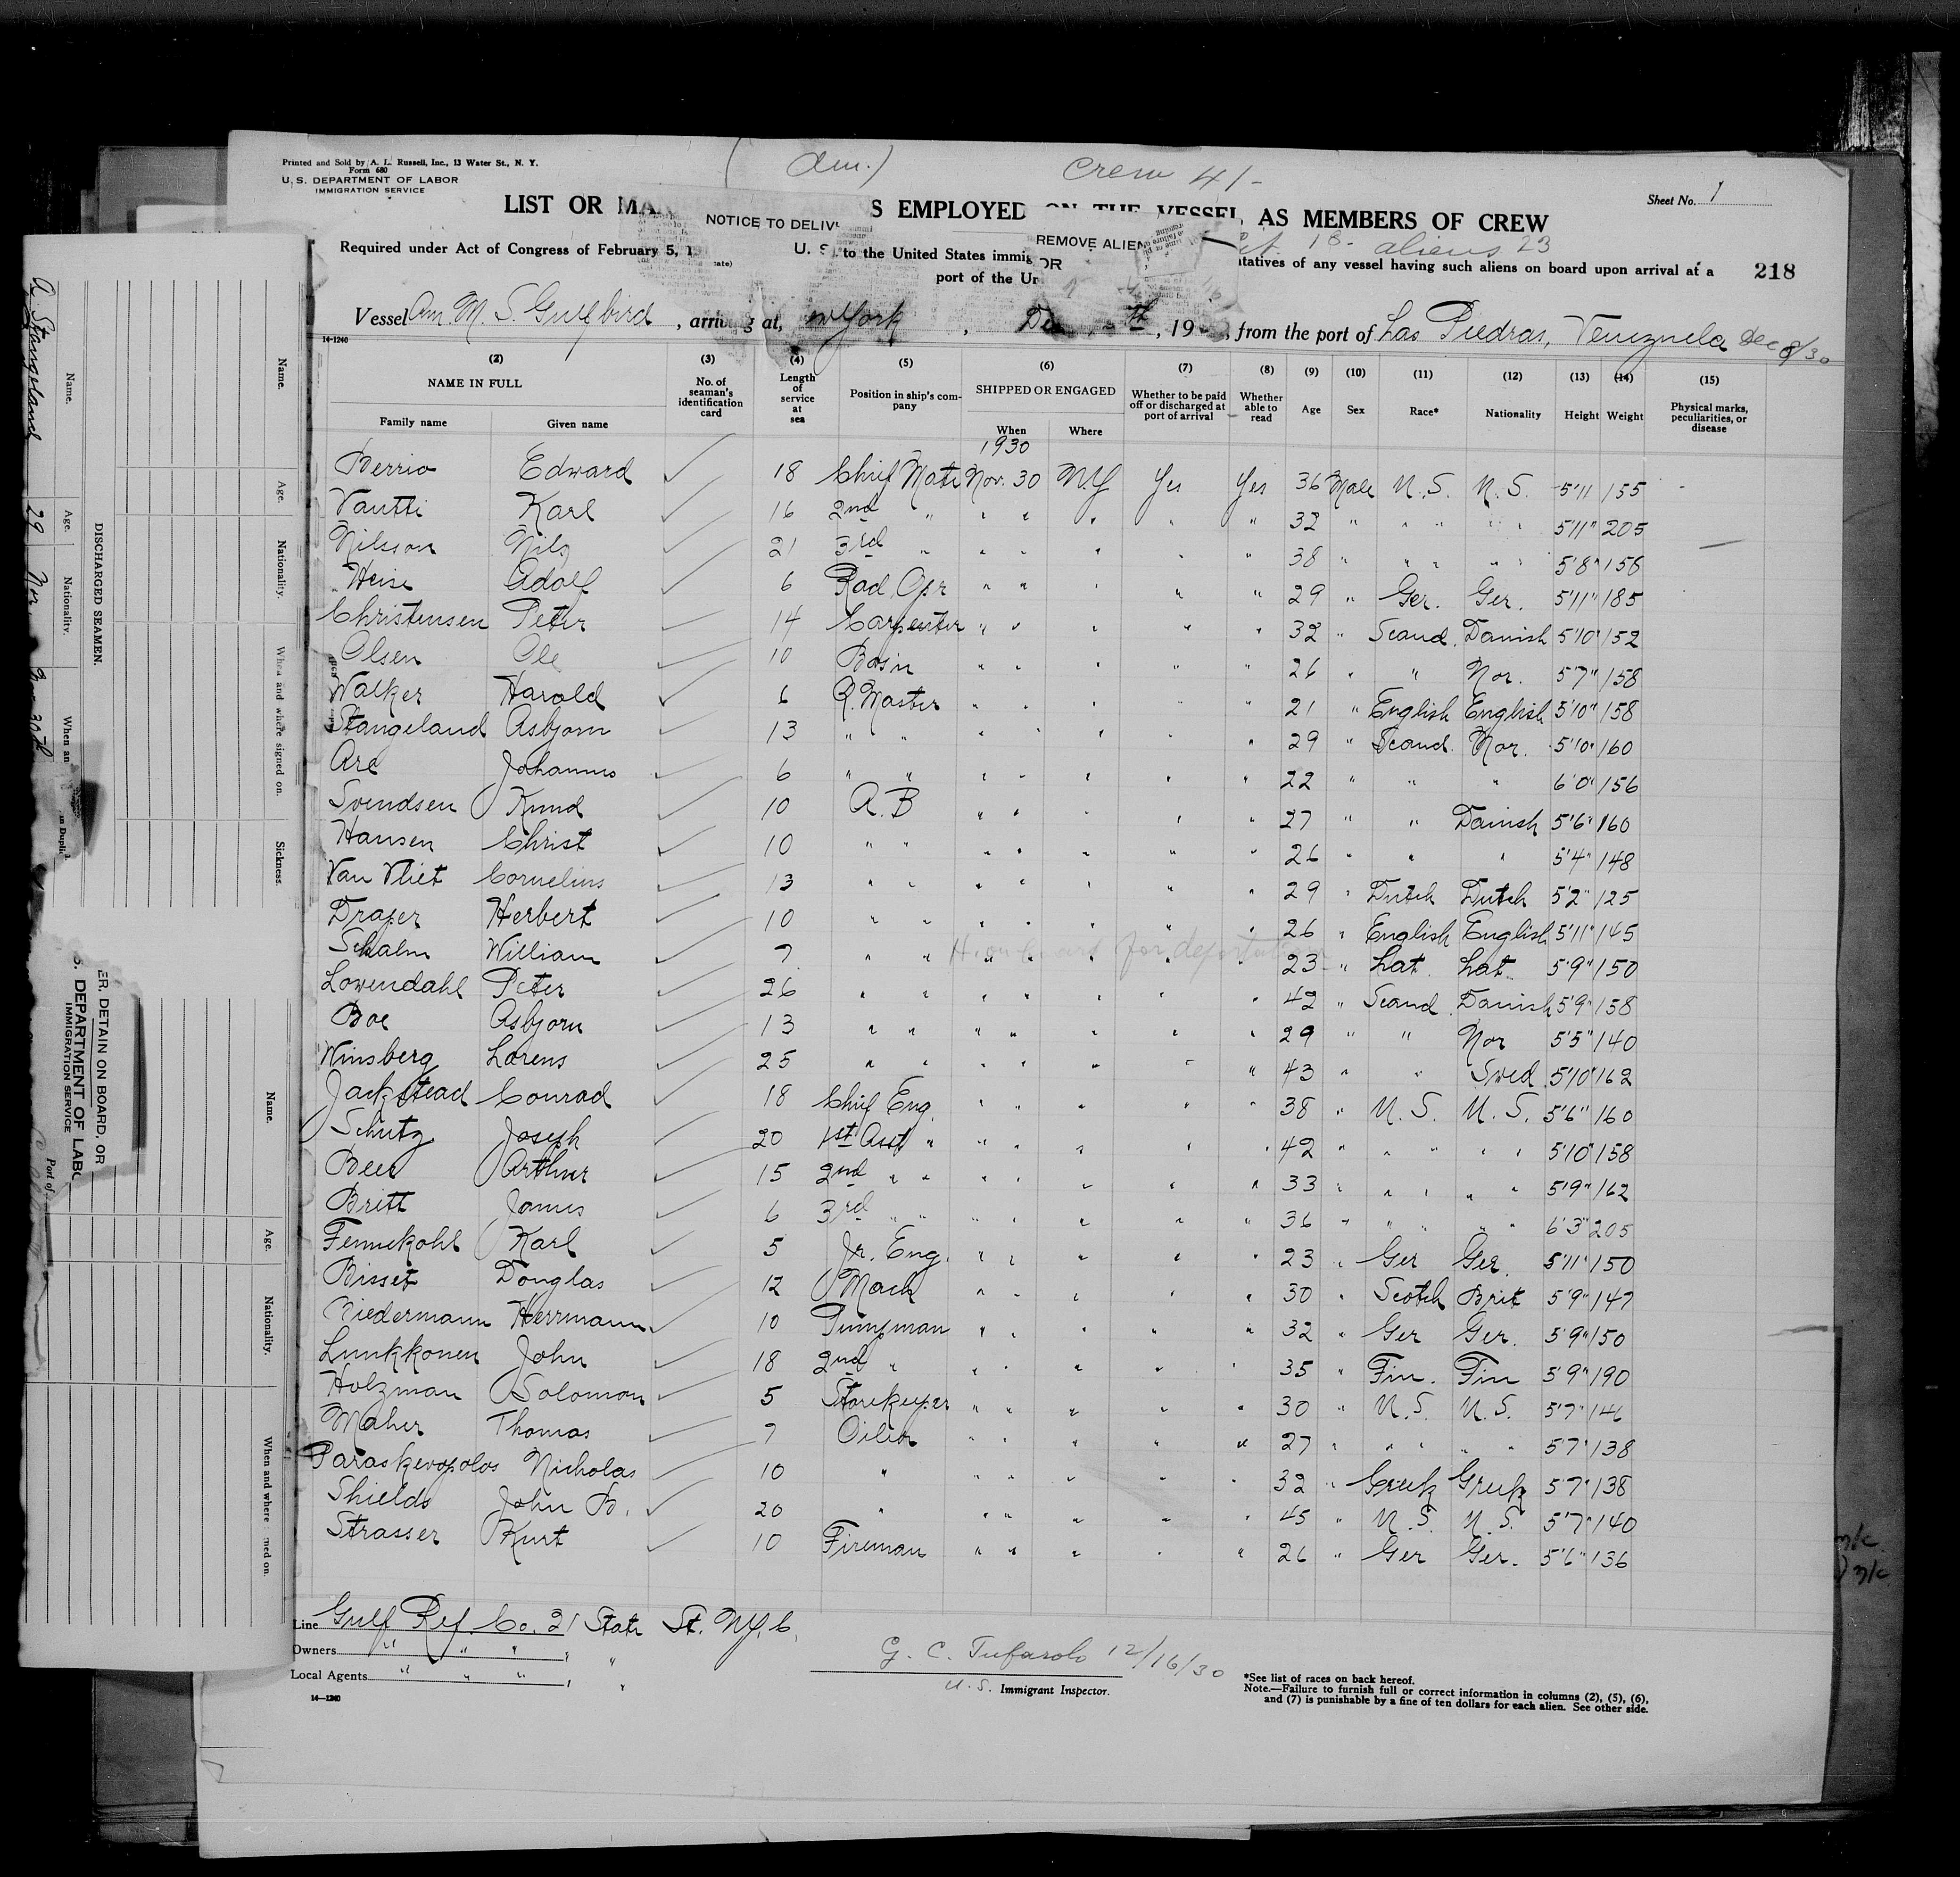 Printed and Sold by A. L. Russell, Inc., 13 Water St., N. Y.
Form 680
U. S. DEPARTMENT OF LABOR
IMMIGRATION SERVICE
(Am.)
Crew 41-
Sheet No. 1
LIST OR MA S EMPLOYED ON THE VESSEL AS MEMBERS OF CREW
NOTICE TO DELIV
REMOVE ALIEN
18- aliens 23
Required under Act of Congress of February 5, 1 U. S. to the United States immig OR tatives of any vessel having such aliens on board upon arrival at a 218
port of the Un
Vessel Am. M. S. Gulfbird, arriving at, York, De th, 19 , from the port of Las Piedras, Venezuela Dec 8/30
14-1240
(2) (3) (4) (5) (6) (7) (8) (9) (10) (11) (12) (13) (14) (15)
NAME IN FULL No. of seaman's identification card Length of service at sea Position in ship's company SHIPPED OR ENGAGED Whether to be paid off or discharged at port of arrival Whether able to read Age Sex Race* Nationality Height Weight Physical marks, peculiarities, or disease
Family name Given name When Where
1930
Berrio Edward ✓ 18 Chief Mate Nov. 30 N.Y Yes Yes 36 Male U.S. U.S. 5'11 155 -
Vautti Karl ✓ 16 2nd " " " " " " 32 " " " " " 5'11" 205
Nilsson Nils ✓ 21 3rd " " " " " " 38 " " " " " 5'8" 156
Heise Adolf ✓ 6 Rad. Opr " " " " " 29 " Ger. Ger. 5'11" 185
Christensen Peter ✓ 14 Carpenter " " " " " 32 " Scand. Danish 5'10" 152
Olsen Ole ✓ 10 Bos'n " " " " " 26 " " Nor. 5'7" 158
Walker Harold ✓ 6 Q. Master " " " " " 21 " English English 5'10" 158
Stangeland Asbjorn ✓ 13 " " " " " " " 29 " Scand. Nor. 5'10" 160
Are Johannes ✓ 6 " " " " " " " 22 " " " 6'0" 156
Svendsen Knud ✓ 10 A.B " " " " " 27 " " Danish 5'6" 160
Hansen Christ ✓ 10 " " " " " " " 26 " " " 5'4" 148
Van Vliet Cornelius ✓ 13 " " " " " " " 29 " Dutch Dutch 5'2" 125
Draper Herbert ✓ 10 " " " " " " " 26 " English English 5'11" 145
Schalm William ✓ 7 " " " " " " " 23 " Lat. Lat. 5'9" 150
for deportation
Lowendahl Peter ✓ 26 " " " " " " " 42 " Scand. Danish 5'9" 158
Boe Asbjorn ✓ 13 " " " " " " " 29 " " Nor 5'5" 140
Winsberg Lorens ✓ 25 " " " " " " " 43 " " Swed. 5'10" 162
Jack Stead Conrad ✓ 18 Chief Eng. " " " " " 38 " U.S. U.S. 5'6" 160
Schutz Joseph ✓ 20 1st Asst " " " " " " 42 " " " " " 5'10" 158
Beer Arthur ✓ 15 2nd " " " " " " " 33 " " " " " 5'9" 162
Britt James ✓ 6 3rd " " " " " " " 36 " " " " " 6'3" 205
Fennekohl Karl ✓ 5 Jr. Eng. " " " " " 23 " Ger Ger. 5'11" 150
Bisset Douglas ✓ 12 Mach " " " " " 30 " Scotch Brit 5'9" 147
Niedermann Herrmann ✓ 10 Pumpman " " " " " 32 " Ger Ger. 5'9" 150
Lunkkonen John ✓ 18 2nd " " " " " " 35 " Fin. Fin 5'9" 190
Holzman Solomon ✓ 5 Storekeeper " " " " " 30 " U.S. U.S. 5'7" 146
Maher Thomas ✓ 7 Oiler " " " " " 27 " " " " " 5'7" 138
Paraskevopolos Nicholas ✓ 10 " " " " " " 32 " Greek Greek 5'7" 138
Shields John B. ✓ 20 " " " " " " 45 " U.S. U.S. 5'7" 140
Strasser Kurt ✓ 10 Fireman " " " " " 26 " Ger Ger. 5'6" 136
Line Gulf Ref. Co. 21 State St. N.Y.C.
Owners " " " , "
Local Agents " " " , "
14-1240
G. C. Tufarolo 12/16/30
U. S. Immigrant Inspector.
*See list of races on back hereof.
Note.—Failure to furnish full or correct information in columns (2), (5), (6),
and (7) is punishable by a fine of ten dollars for each alien. See other side.
DISCHARGED SEAMEN.
Name. Age. Nationality. When and where signed on. Sickness.
Name. Age. Nationality. When an
A. Stangeland 29 Nor. Nov 30th
in Dupli
ER, DETAIN ON BOARD, OR
S. DEPARTMENT OF LABO
IMMIGRATION SERVICE
Port of
Name. Age. Nationality. When and where med on.
n/c
n/c